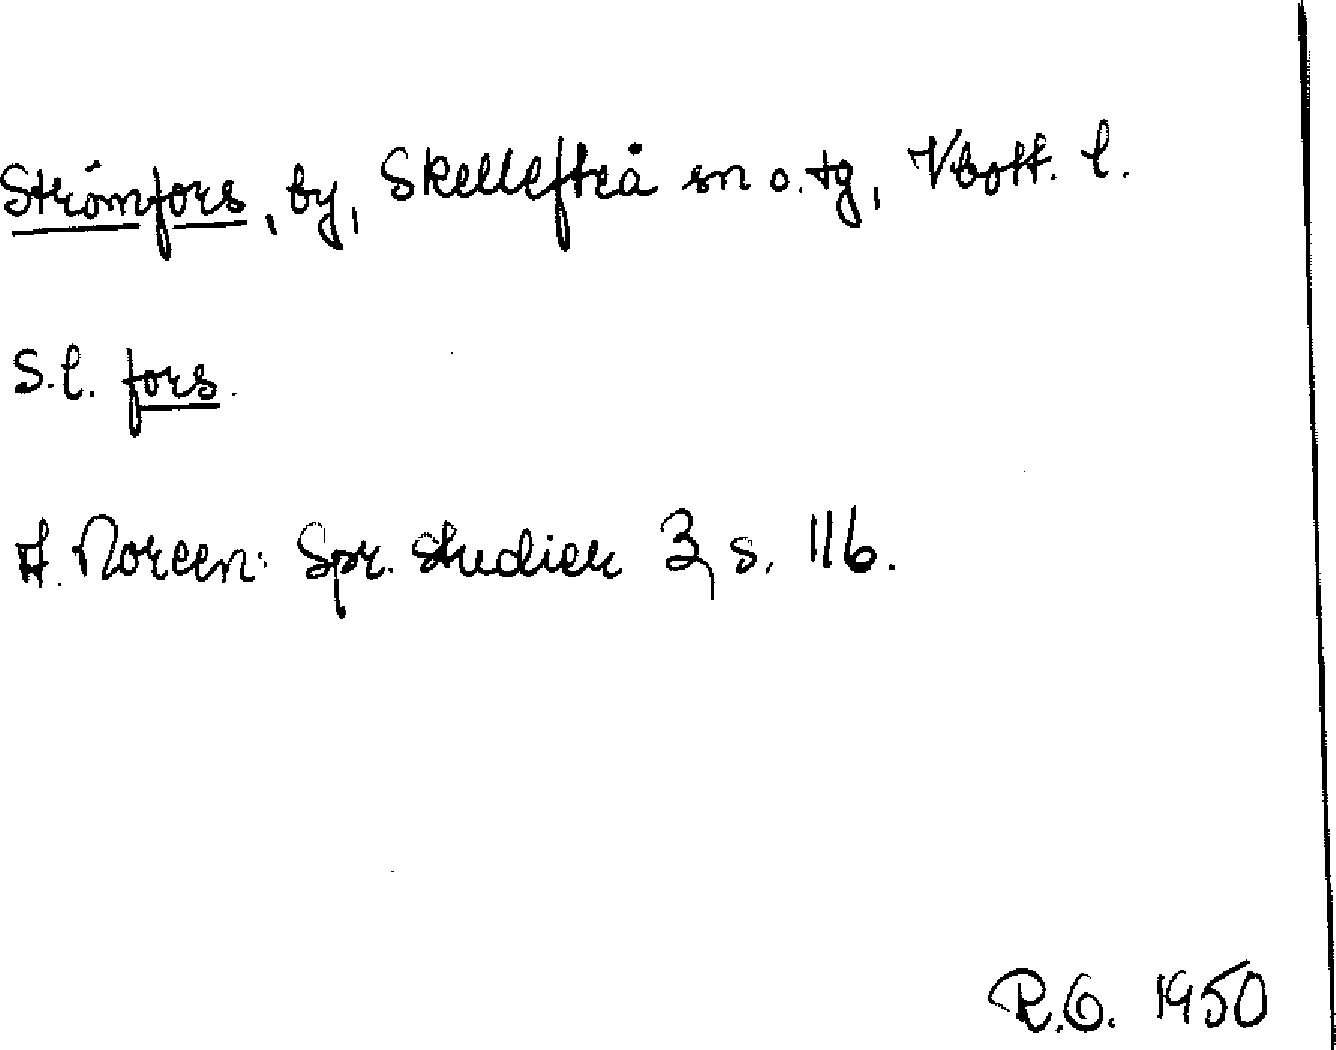 Strömfors, by, Skellefteå sn o. tg, Vbott. l.
S.l. fors.
A. Noreen: Spr. studier 3, s. 116.
R.G. 1950